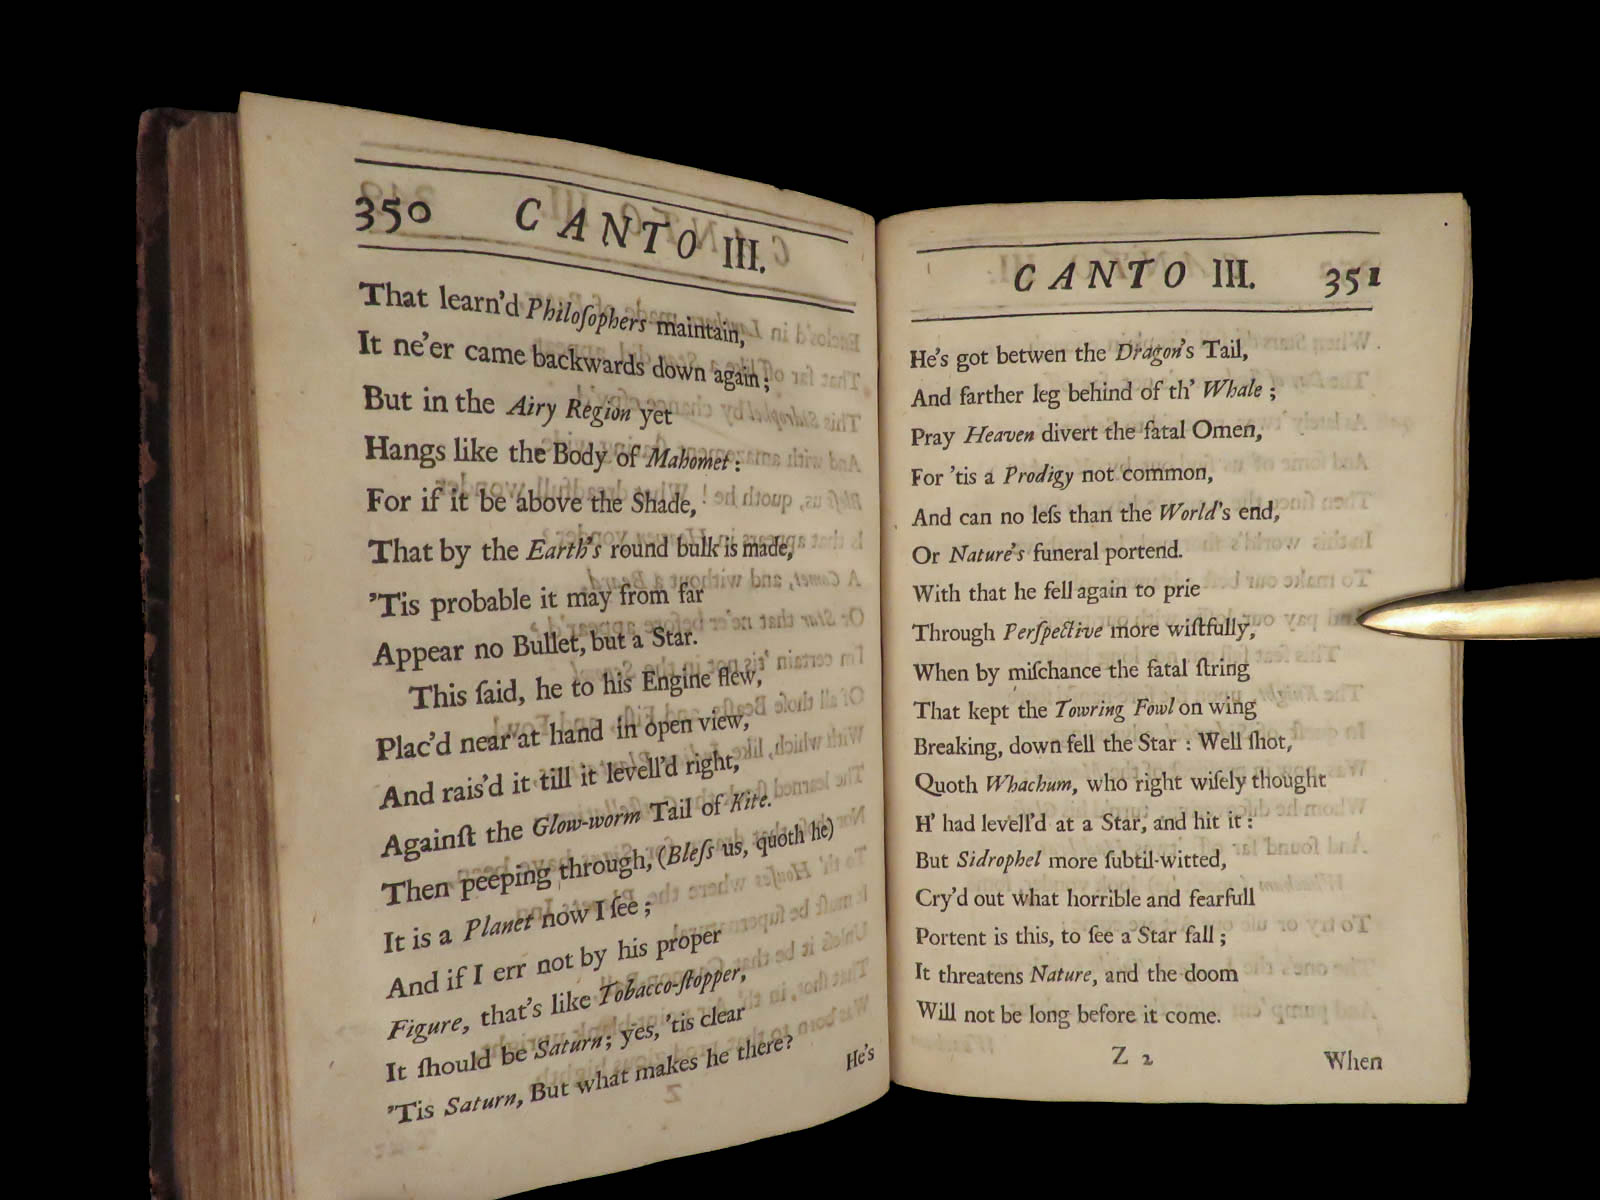 350 CANTO III.
That learn'd Philoſophers maintain,
It ne'er came backwards down again;
But in the Airy Region yet
Hangs like the Body of Mahomet:
For if it be above the Shade,
That by the Earth's round bulk is made,
'Tis probable it may from far
Appear no Bullet, but a Star.
This ſaid, he to his Engine flew,
Plac'd near at hand in open view,
And rais'd it till it levell'd right,
Againſt the Glow-worm Tail of Kite.
Then peeping through, (Bleſs us, quoth he)
It is a Planet now I ſee;
And if I err not by his proper
Figure, that's like Tobacco-ſtopper,
It ſhould be Saturn; yes, 'tis clear
'Tis Saturn, But what makes he there?
He's
CANTO III. 351
He's got betwen the Dragon's Tail,
And farther leg behind of th' Whale;
Pray Heaven divert the fatal Omen,
For 'tis a Prodigy not common,
And can no leſs than the World's end,
Or Nature's funeral portend.
With that he fell again to prie
Through Perſpective more wiſtfully,
When by miſchance the fatal ſtring
That kept the Towring Fowl on wing
Breaking, down fell the Star: Well ſhot,
Quoth Whachum, who right wiſely thought
H' had levell'd at a Star, and hit it:
But Sidrophel more ſubtil-witted,
Cry'd out what horrible and fearfull
Portent is this, to ſee a Star fall;
It threatens Nature, and the doom
Will not be long before it come.
Z 2 When